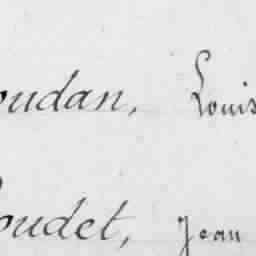 oudan, Louis
oudet, Jean